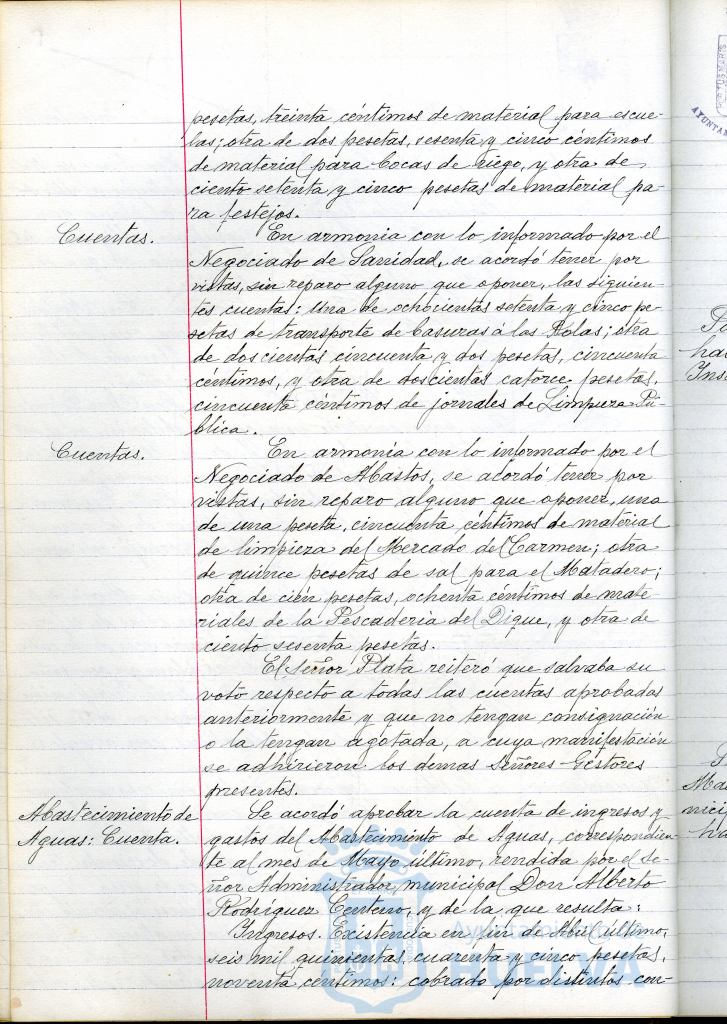 pesetas, treinta céntimos de material para escue-
las; otra de dos pesetas, sesenta y cinco céntimos
de material para bocas de riego, y otra de
ciento setenta y cinco pesetas de material pa-
ra festejos.
Cuentas.
En armonia con lo informado por el
Negociado de Sanidad, se acordó tener por
vistas, sin reparo alguno que oponer, las siguien-
tes cuentas: Una de ochocientas setenta y cinco pe-
setas de transporte de basuras á las Kolas; otra
de doscientas cincuenta y dos pesetas, cincuenta
céntimos, y otra de doscientas catorce pesetas,
cincuenta céntimos de jornales de Limpieza Pú-
blica.
Cuentas.
En armonía con lo informado por el
Negociado de Abastos, se acordó tener por
vistas, sin reparo alguno que oponer, una
de una peseta, cincuenta céntimos de material
de limpieza del Mercado del Carmen; otra
de quince pesetas de sal para el Matadero;
otra de cien pesetas, ochenta céntimos de mate-
riales de la Pescaderia del Dique, y otra de
ciento sesenta pesetas.
El señor Plata reiteró que salvaba su
voto respecto a todas las cuentas aprobadas
anteriormente y que no tengan consignación
o la tengan agotada, a cuya manifestación
se adhirieron los demas Señores Gestores
presentes.
Abastecimiento de
Aguas: Cuenta.
Se acordó aprobar la cuenta de ingresos y
gastos del Abastecimiento de Aguas, correspondien-
te al mes de Mayo último, rendida por el Se-
ñor Administrador municipal Don Alberto
Rodríguez Centeno, y de la que resulta:
Ingresos. Existencia en fin de Abril último,
seis mil quinientas cuarenta y cinco pesetas,
noventa centimos: cobrado por distintos con-
HUELVA